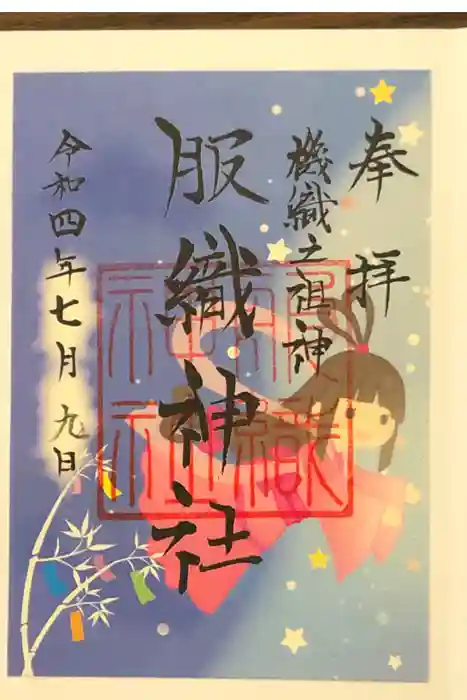 奉拝
機織之祖神
服織神社
令和四年七月九日